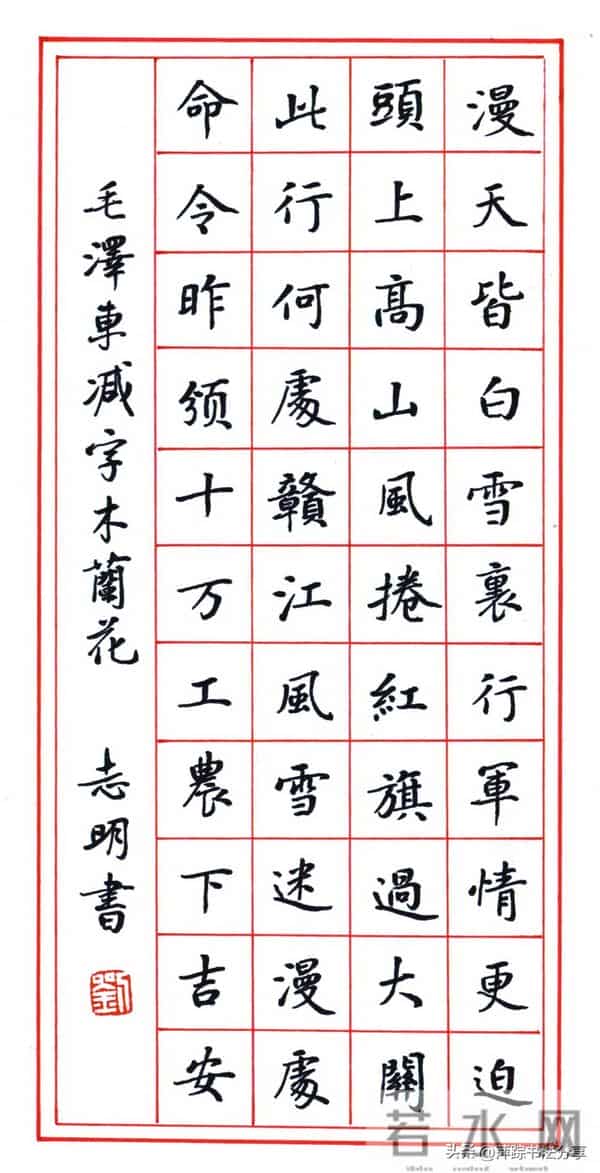 漫天皆白雪裏行軍情更迫
頭上高山風捲紅旗過大關
此行何處贛江風雪迷漫處
命令昨頒十万工農下吉安
毛澤東减字木蘭花 志明書
劉
若水网
头条@萍踪书法分享